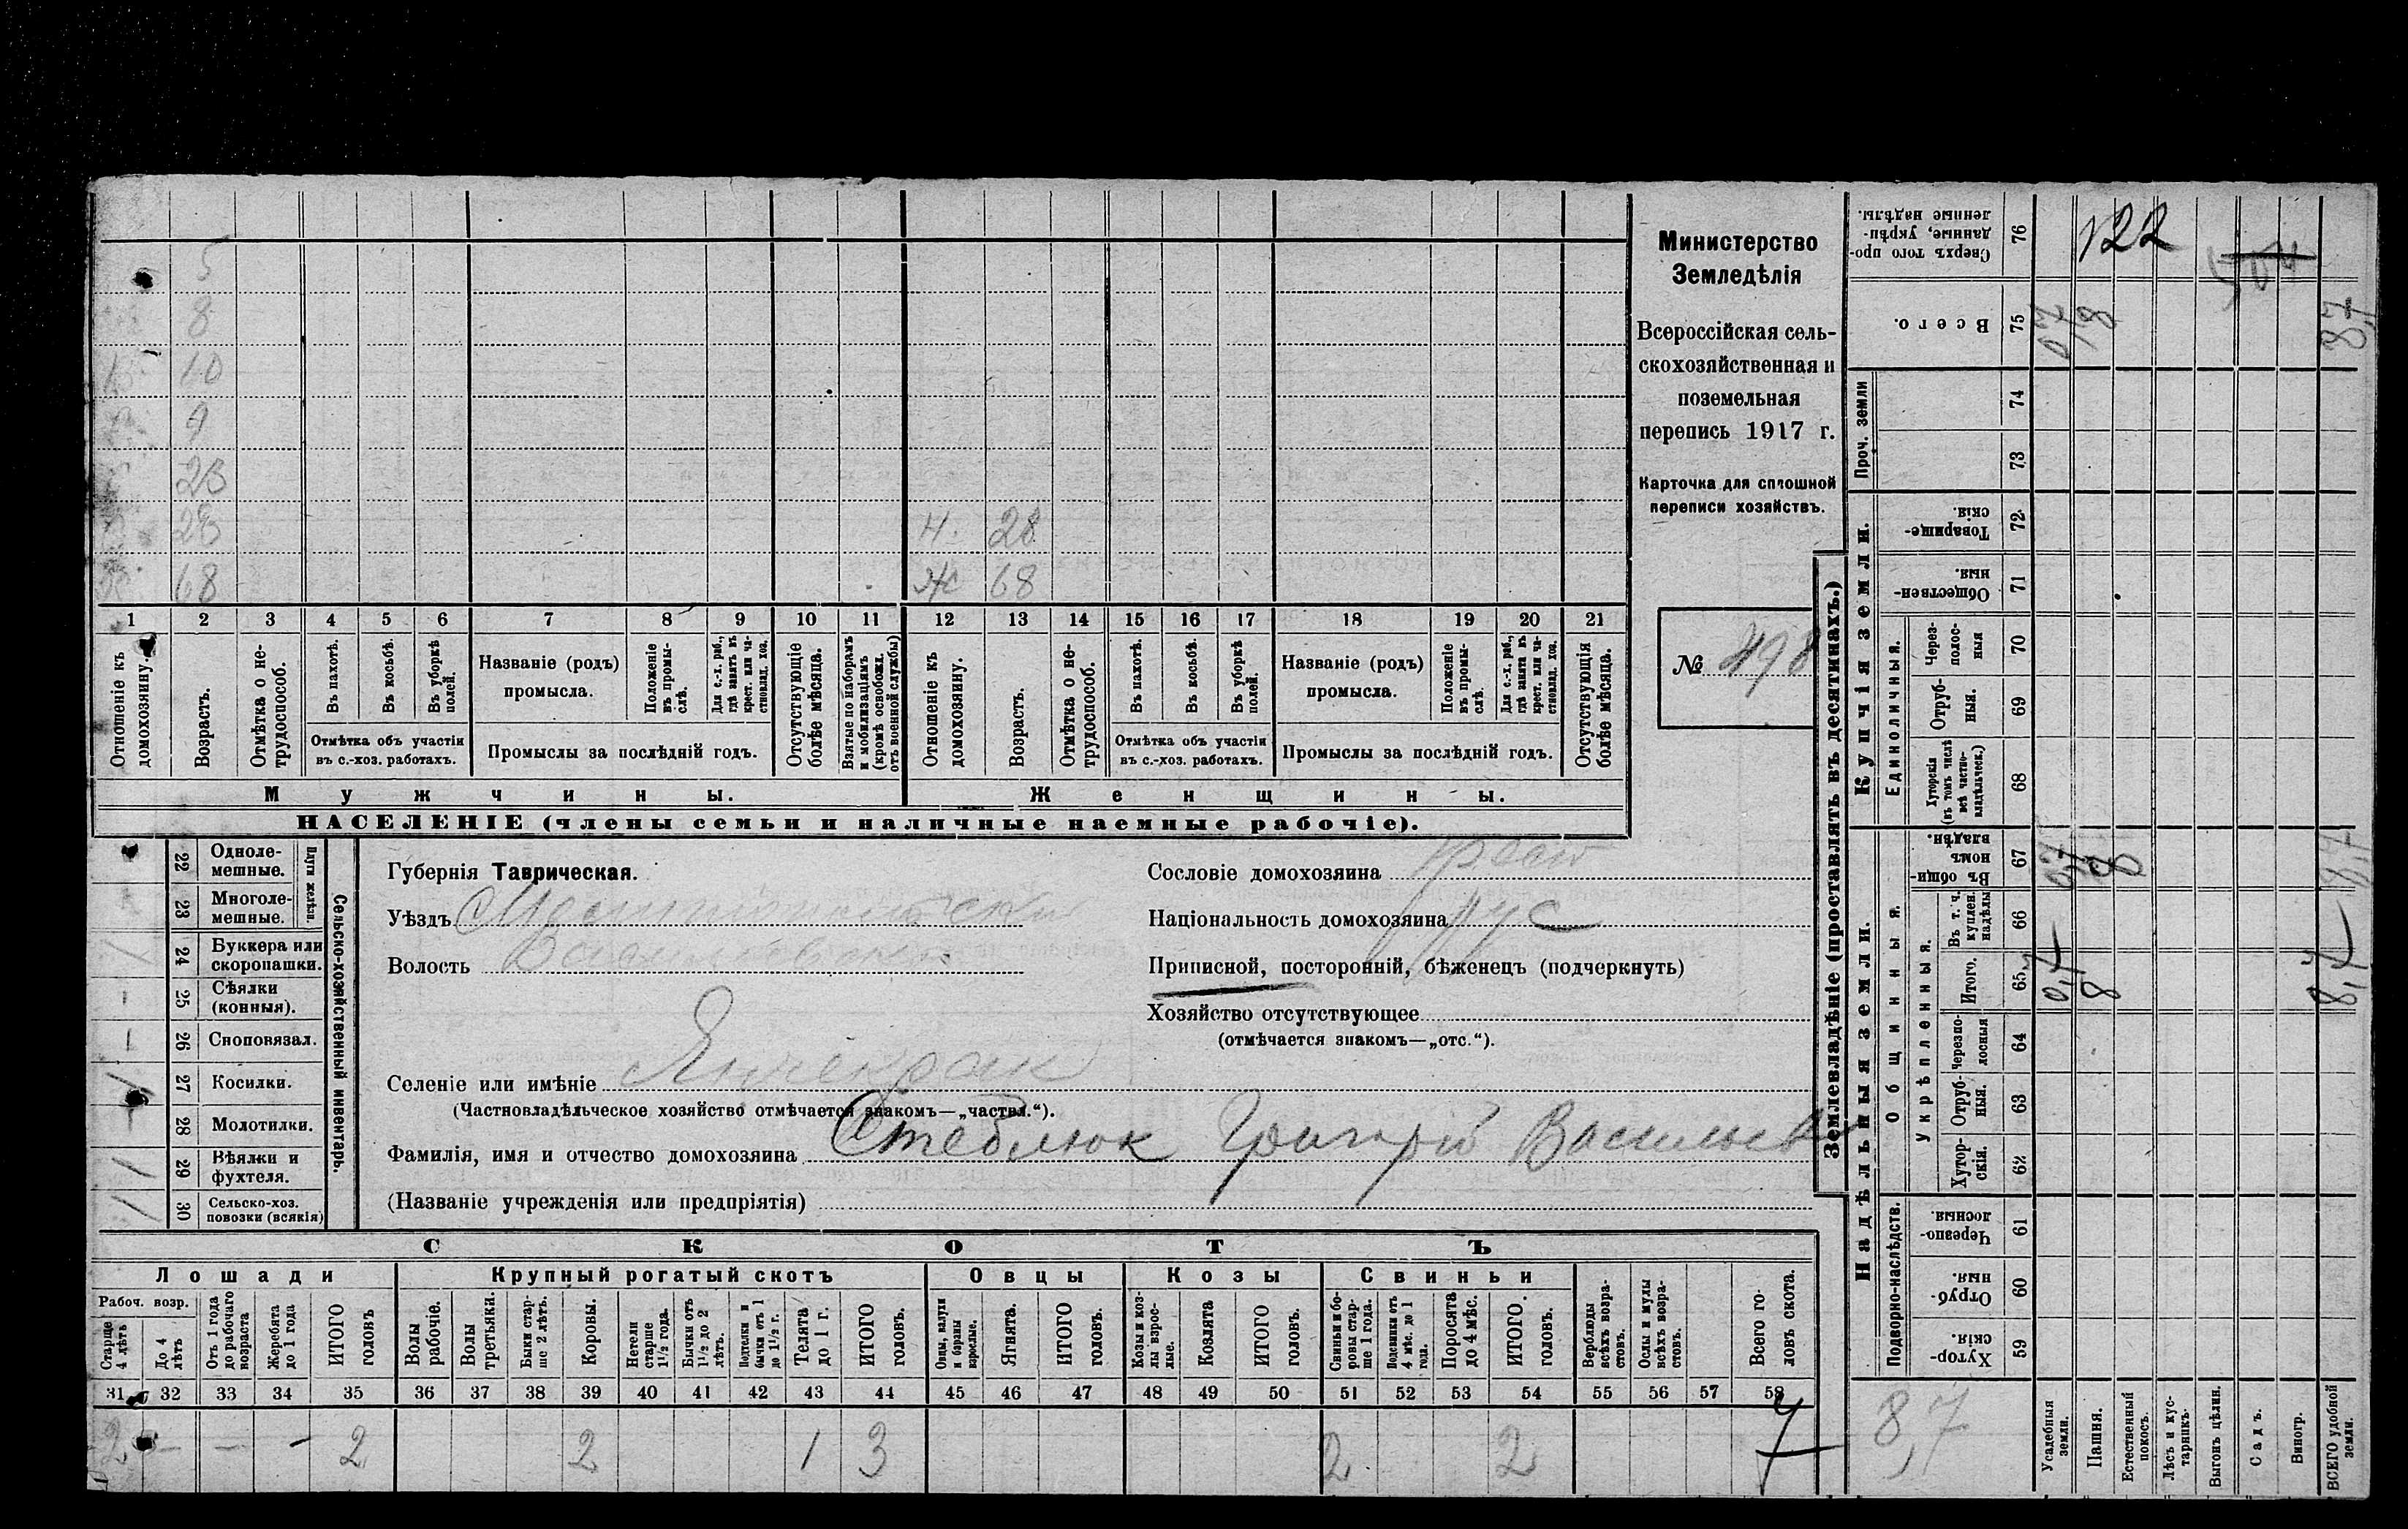 5
8
10
9
23
28
Н. 28
68 Ж 68
1 2 3 4 5 6 7 8 9 10 11 12 13 14 15 16 17 18 19 20 21
Отношеніе къ домохозяину.
Возрастъ.
Отмѣтка о не-трудоспособ.
Въ пахотѣ.
Въ косьбѣ.
Въ уборкѣ полей.
Отмѣтка объ участіи
въ с.-хоз. работахъ.
Названіе (родъ)
промысла.
Положеніе въ промы-слѣ.
Для с.-х. раб., гдѣ занятъ въ крест. или ча-стновлад. хоз.
Промыслы за послѣдній годъ.
Отсутствующіе болѣе мѣсяца.
Взятые по наборамъ и мобилизаціямъ (кромѣ освобожд. отъ военной службы)
Отношеніе къ домохозяину.
Возрастъ.
Отмѣтка о не-трудоспособ.
Въ пахотѣ.
Въ косьбѣ.
Въ уборкѣ полей.
Отмѣтка объ участіи
въ с.-хоз. работахъ.
Названіе (родъ)
промысла.
Положеніе въ промы-слѣ.
Для с.-х. раб., гдѣ занята въ крест. или ча-стновлад. хоз.
Промыслы за послѣдній годъ.
Отсутствующія болѣе мѣсяца.
Мужчины.
Женщины.
НАСЕЛЕНІЕ (члены семьи и наличные наемные рабочіе).
Министерство
Земледѣлія
Всероссійская сель-
скохозяйственная и
поземельная
перепись 1917 г.
Карточка для сплошной
переписи хозяйствъ.
№ 498
Сельско-хозяйственный инвентарь.
Плуги желѣзн.
22 Одноле-мешные.
23 Многоле-мешные.
24 Буккера или скоропашки.
25 Сѣялки (конныя).
26 Сноповязал.
27 Косилки.
28 Молотилки.
29 Вѣялки и фухтеля.
30 Сельско-хоз. повозки (всякія)
Губернія Таврическая.
Уѣздъ
Волость
Селеніе или имѣніе Янчекрак
(Частновладѣльческое хозяйство отмѣчается знакомъ—„частвл.“).
Фамилія, имя и отчество домохозяина Стеблюк Григорій Васильев
(Названіе учрежденія или предпріятія)
Сословіе домохозяина крест
Національность домохозяина рус
Приписной, посторонній, бѣженецъ (подчеркнуть)
Хозяйство отсутствующее
(отмѣчается знакомъ—„отс.“).
СКОТЪ
Лошади
Крупный рогатый скотъ
Овцы
Козы
Свиньи
Рабоч. возр.
Старше 4 лѣтъ
До 4 лѣтъ
Отъ 1 года до рабочаго возраста
Жеребята до 1 года
ИТОГО головъ
Волы рабочіе.
Волы третьяки.
Быки стар-ше 2 лѣтъ.
Коровы.
Нетели старше 1½ года.
Бычки отъ 1½ до 2 лѣтъ.
Подтелки и бычки отъ 1 до 1½ г.
Телята до 1 г.
ИТОГО головъ.
Овцы, валухи и бараны взрослые.
Ягнята.
ИТОГО головъ.
Козы и коз-лы взрос-лые.
Козлята
ИТОГО головъ.
Свиньи и бо-ровы стар-ше 1 года.
Подсвинки отъ 4 мѣс. до 1 года.
Поросята до 4 мѣс.
ИТОГО головъ.
Верблюды всѣхъ возра-стовъ.
Ослы и мулы всѣхъ возра-стовъ.
Всего го-ловъ скота.
31 32 33 34 35 36 37 38 39 40 41 42 43 44 45 46 47 48 49 50 51 52 53 54 55 56 57 58
2 — — — 2 2 1 3 2 2 7
Землевладѣніе (проставлять въ десятинахъ.)
Надѣльныя земли.
Купчія земли.
Проч. земли
Подворно-наслѣдств.
Общинныя.
Укрѣпленныя.
Единоличныя.
Сверхъ того про-данные, укрѣп-ленные надѣлы. 76 122
Всего. 75 0,7 8 8,7
74
73
Товарище-скія. 72
Обществен-ныя. 71
Через-полос-ныя 70
Отруб-ныя. 69
Хуторскія (въ томъ числѣ всѣ частно-владѣльческ.) 68
Въ общин-номъ владѣн. 67
Въ т. ч. куплен. надѣлы 66
Итого. 65 0,7 8 8,7
Черезпо-лосныя 64
Отруб-ныя. 63
Хутор-скія. 62
Черезпо-лосныя. 61
Отруб-ныя. 60
Хутор-скія. 59
8,7
Усадебныя земли.
Пашня.
Естественный покосъ.
Лѣсъ и кус-тарникъ.
Выгонъ цѣлин.
Садъ.
Виногр.
ВСЕГО удобной земли.